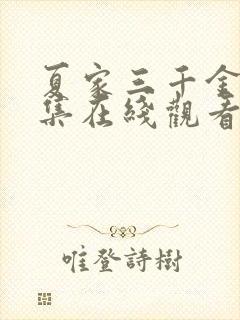 夏家三千金
集在綫觀看
唯登詩樹